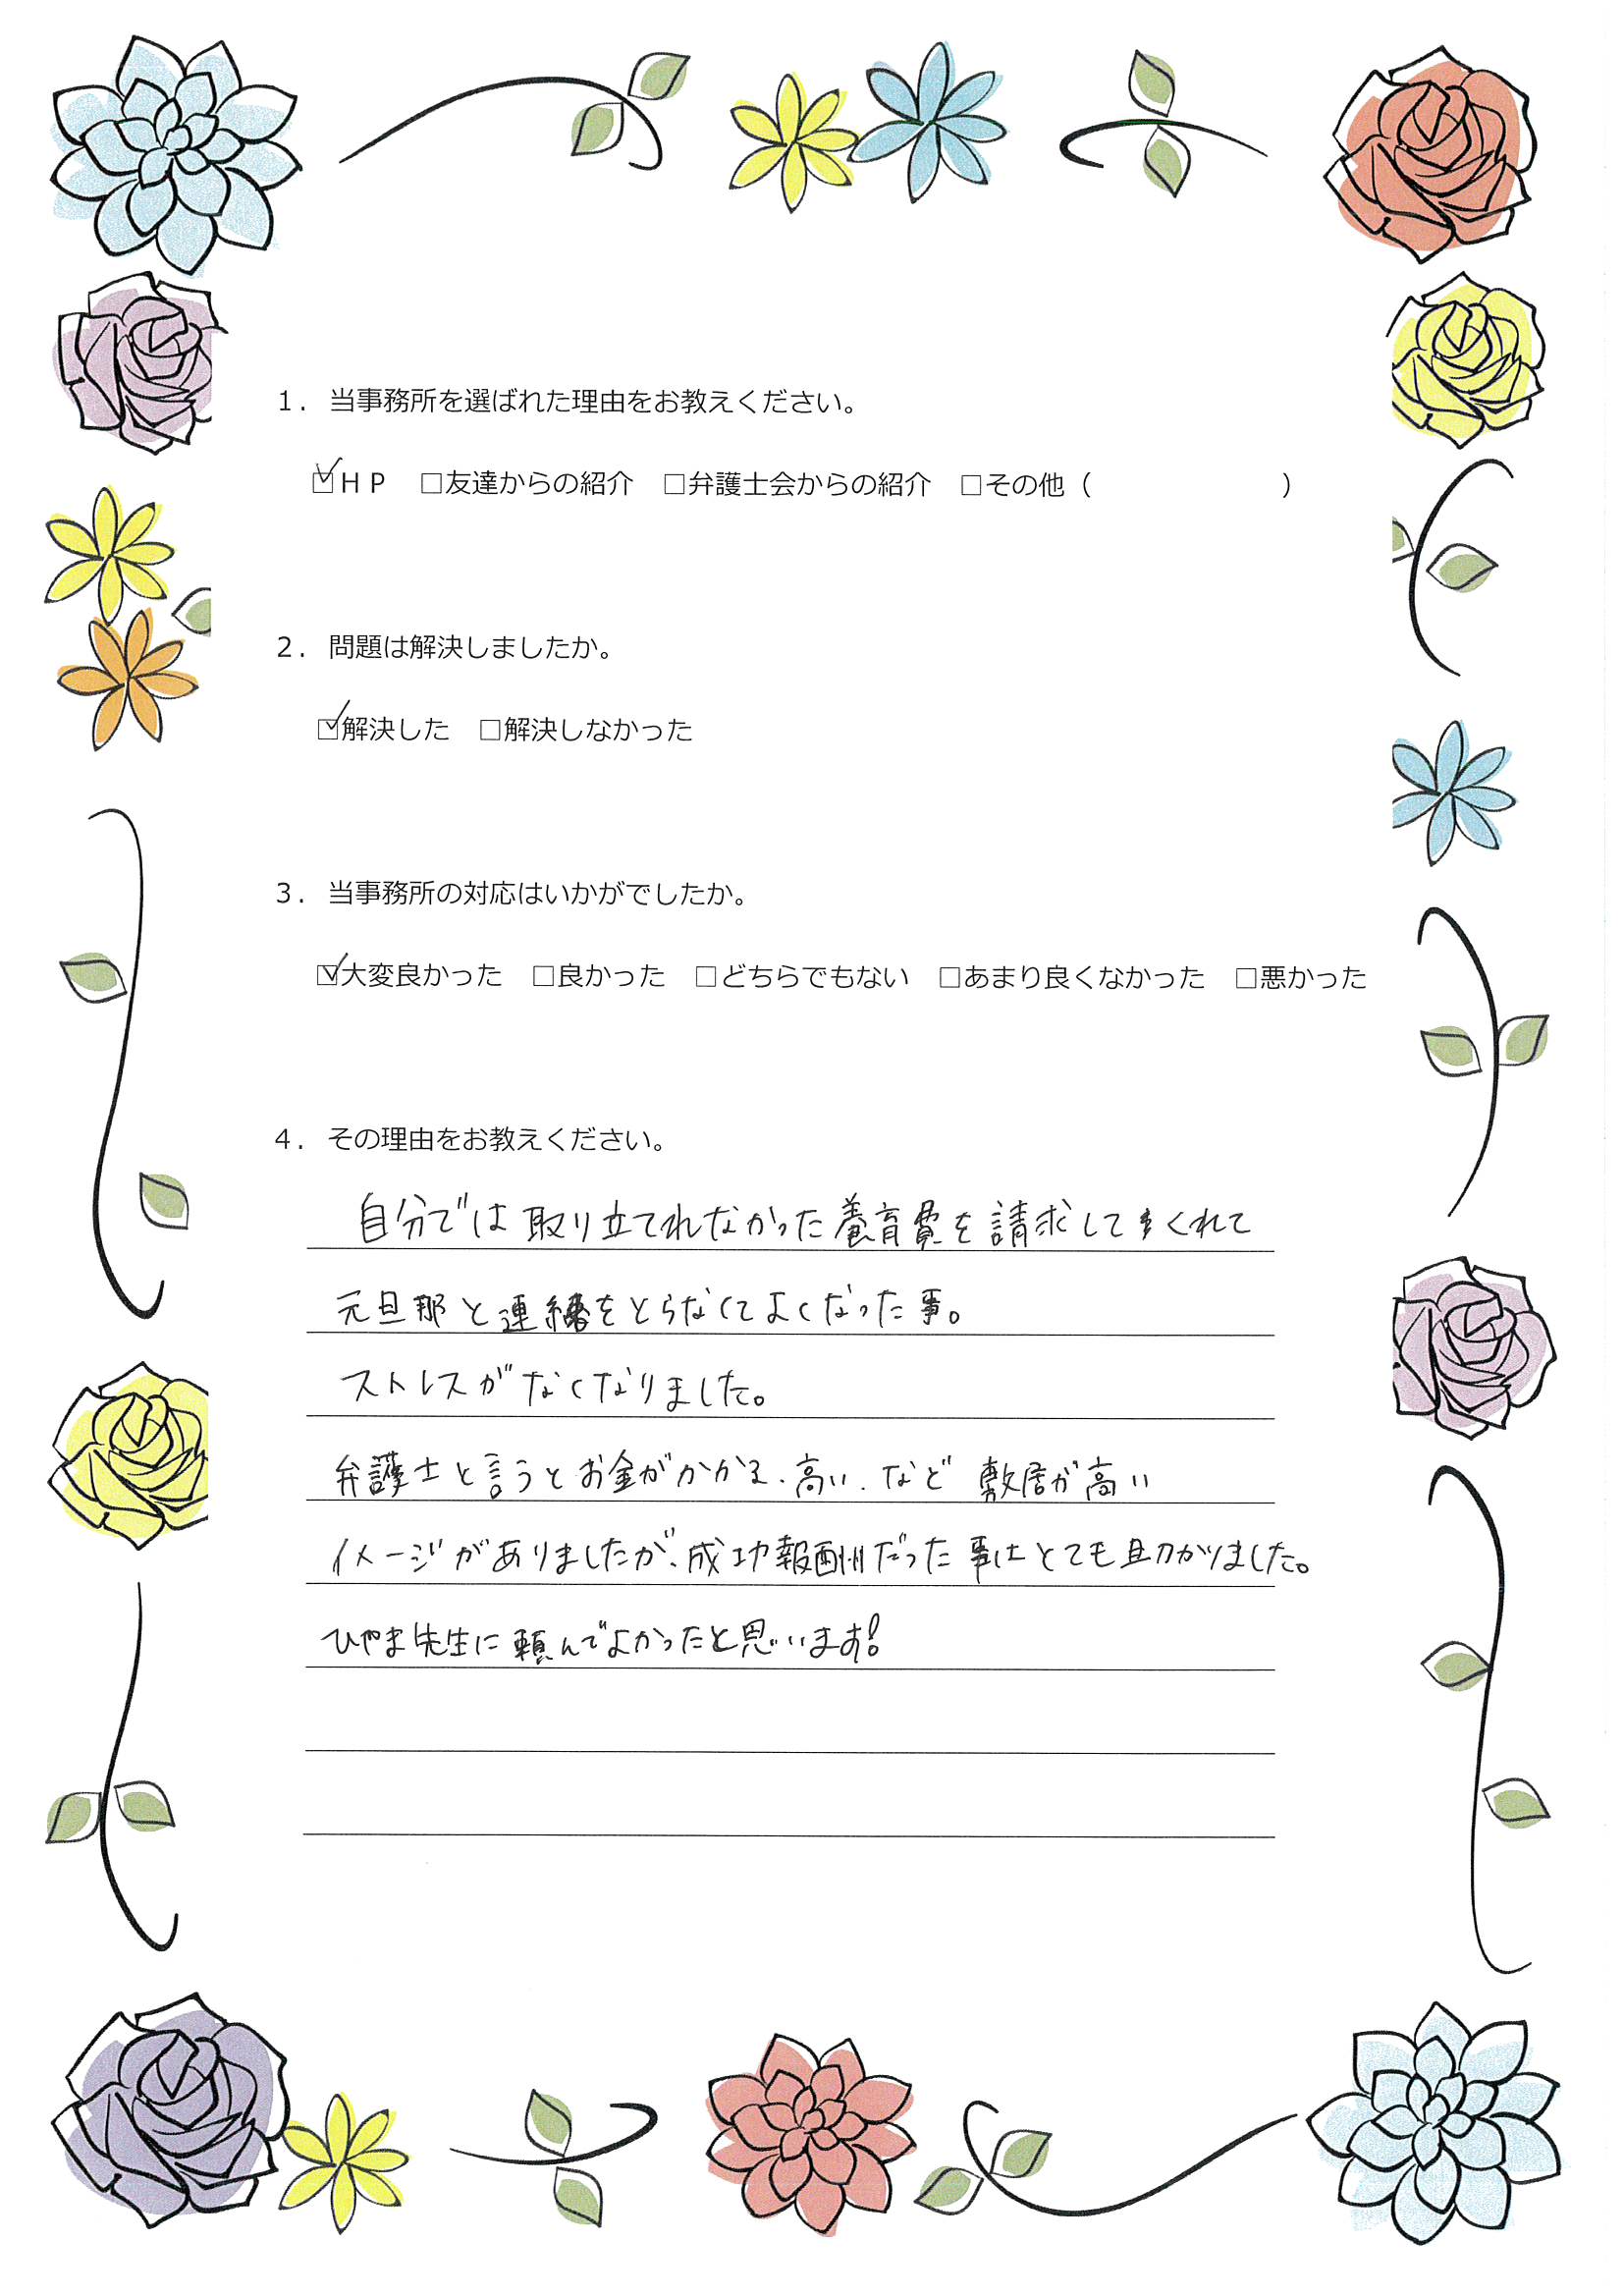 １．当事務所を選ばれた理由をお教えください。
☑ＨＰ　□友達からの紹介　□弁護士会からの紹介　□その他（　　　　　　　）
２．問題は解決しましたか。
☑解決した　□解決しなかった
３．当事務所の対応はいかがでしたか。
☑大変良かった　□良かった　□どちらでもない　□あまり良くなかった　□悪かった
４．その理由をお教えください。
自分では取り立てれなかった養育費を請求してくれて
元旦那と連絡をとらなくてよくなった事。
ストレスがなくなりました。
弁護士と言うとお金がかかる、高い、など 敷居が高い
イメージがありましたが、成功報酬だった事はとても助かりました。
ひやま先生に頼んでよかったと思います!